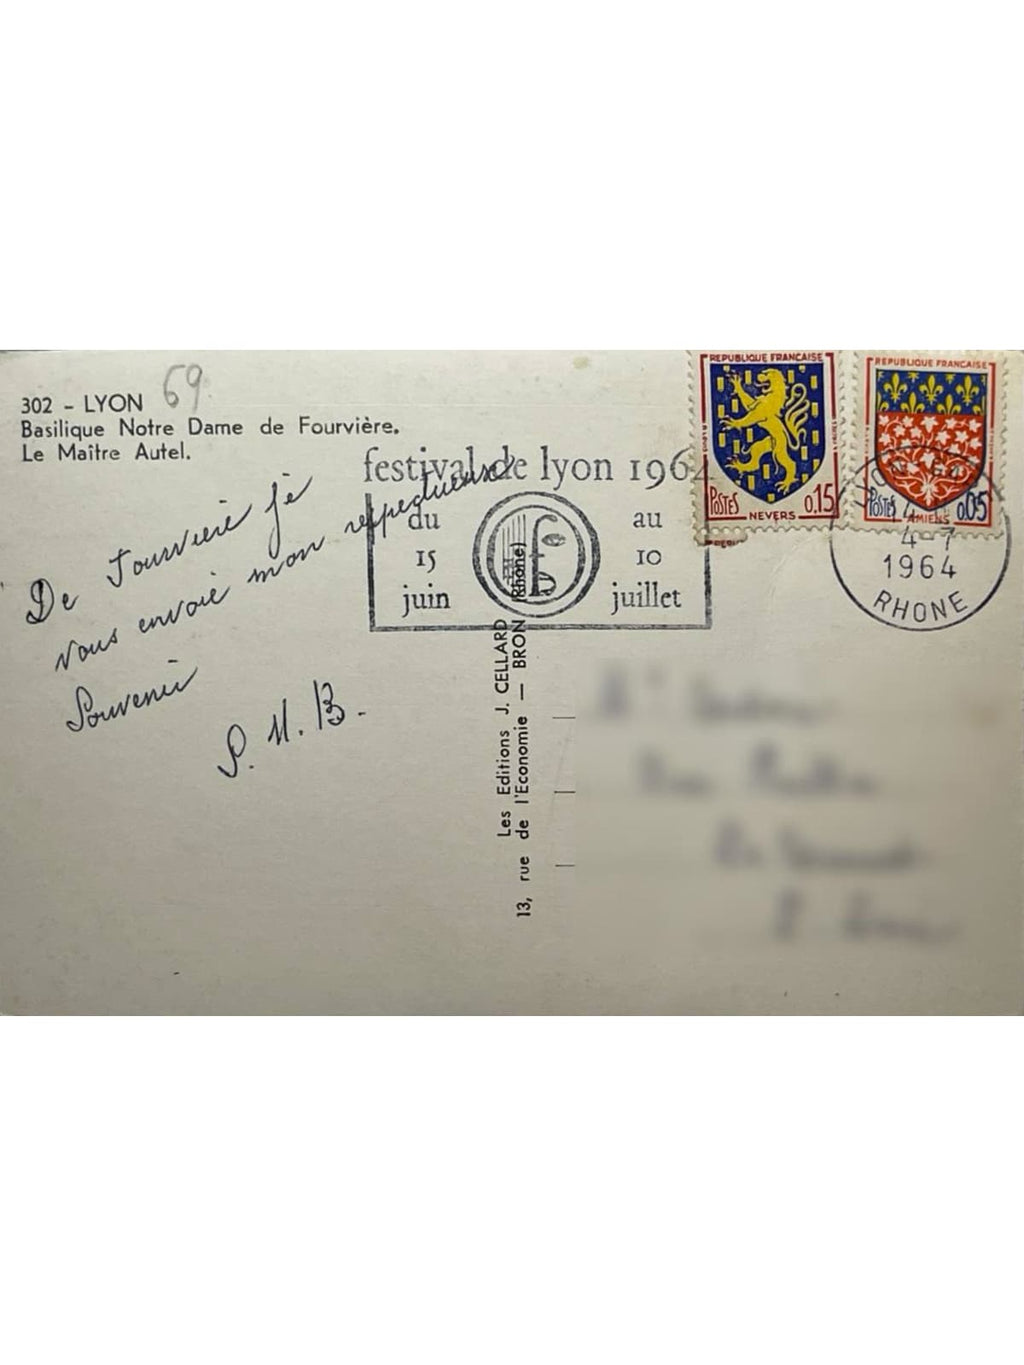 302 - LYON 69
Basilique Notre Dame de Fourvière.
Le Maître Autel.
REPUBLIQUE FRANÇAISE
POSTES 0.15
NEVERS
REPUBLIQUE FRANÇAISE
POSTES 0,05
AMIENS
festival de lyon 1964
du au
15 10
juin juillet
LYON
4-7
1964
RHONE
De Fourvière je
vous envoie mon respectueux
Souvenir
Les Editions J. CELLARD
13, rue de l'Economie — BRON (Rhône)